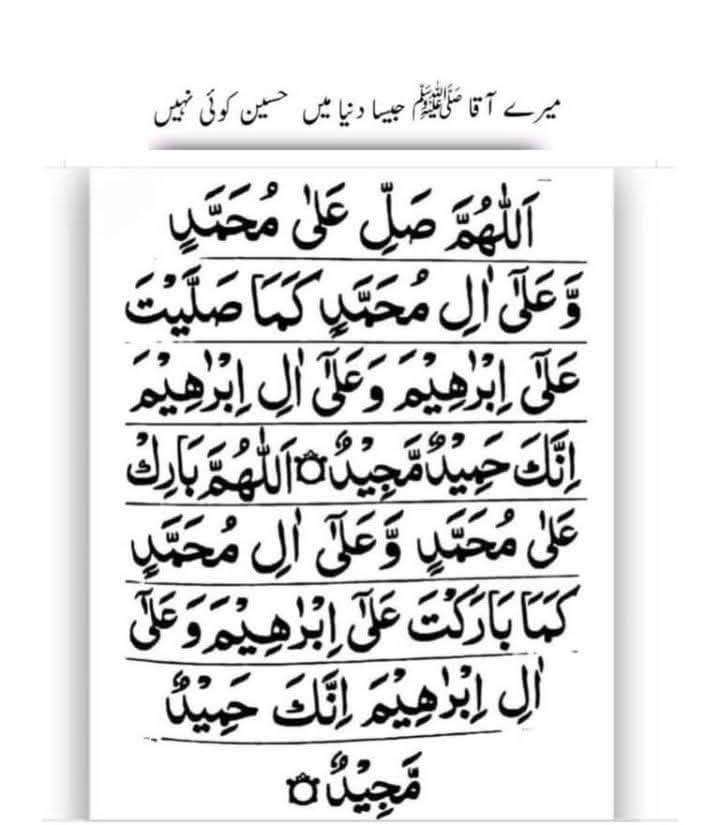 میرے آقا ﷺ جیسا دنیا میں حسین کوئی نہیں
اَللّٰهُمَّ صَلِّ عَلٰى مُحَمَّدٍ
وَّعَلٰٓى اٰلِ مُحَمَّدٍ كَمَا صَلَّيْتَ
عَلٰٓى اِبْرٰهِيْمَ وَعَلٰٓى اٰلِ اِبْرٰهِيْمَ
اِنَّكَ حَمِيْدٌ مَّجِيْدٌ ۝ اَللّٰهُمَّ بَارِكْ
عَلٰى مُحَمَّدٍ وَّعَلٰٓى اٰلِ مُحَمَّدٍ
كَمَا بَارَكْتَ عَلٰٓى اِبْرٰهِيْمَ وَعَلٰٓى
اٰلِ اِبْرٰهِيْمَ اِنَّكَ حَمِيْدٌ
مَّجِيْدٌ ۝